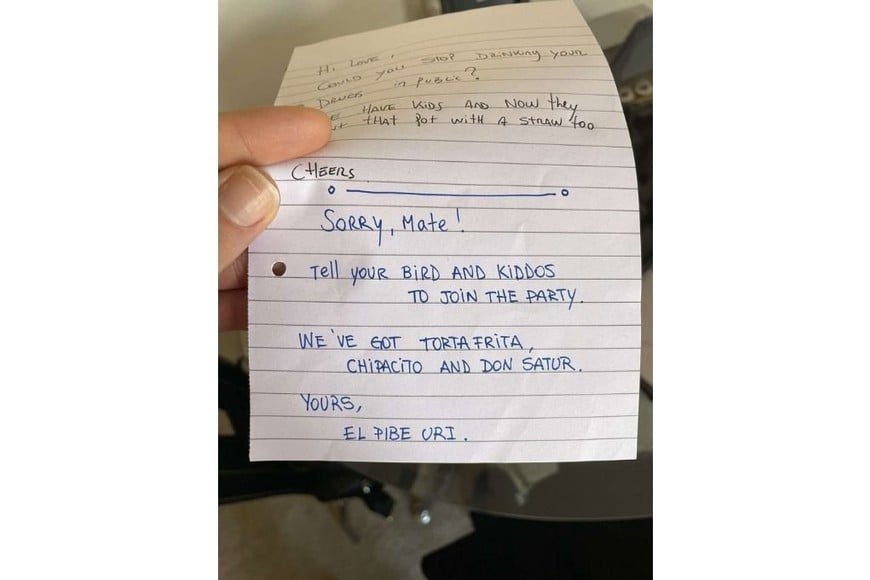 Hi LOVE!
COULD YOU STOP DRINKING YOUR
DRUGS in PUBLIC?
HAVE KIDS AND NOW they
THAT POT WITH A STRAW too
CHEERS
SORRY, Mate!
Tell YOUR BIRD AND KIDDOS
TO JOIN THE PARTY.
WE'VE GOT TORTA FRITA,
CHIPACITO AND DON SATUR.
YOURS,
EL PIBE URI.